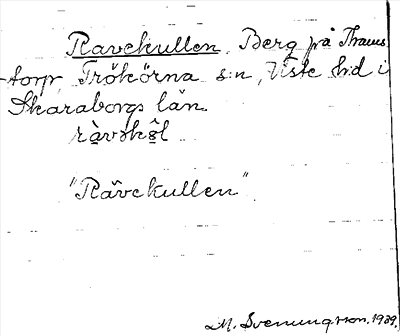 Ravekullen, Berg på Thams-
torp, Trökörna s:n, Viste h:d i
Skaraborgs län.
ràvəkɷ̂l
"Rävekullen"
M. Svenungsson. 1939.